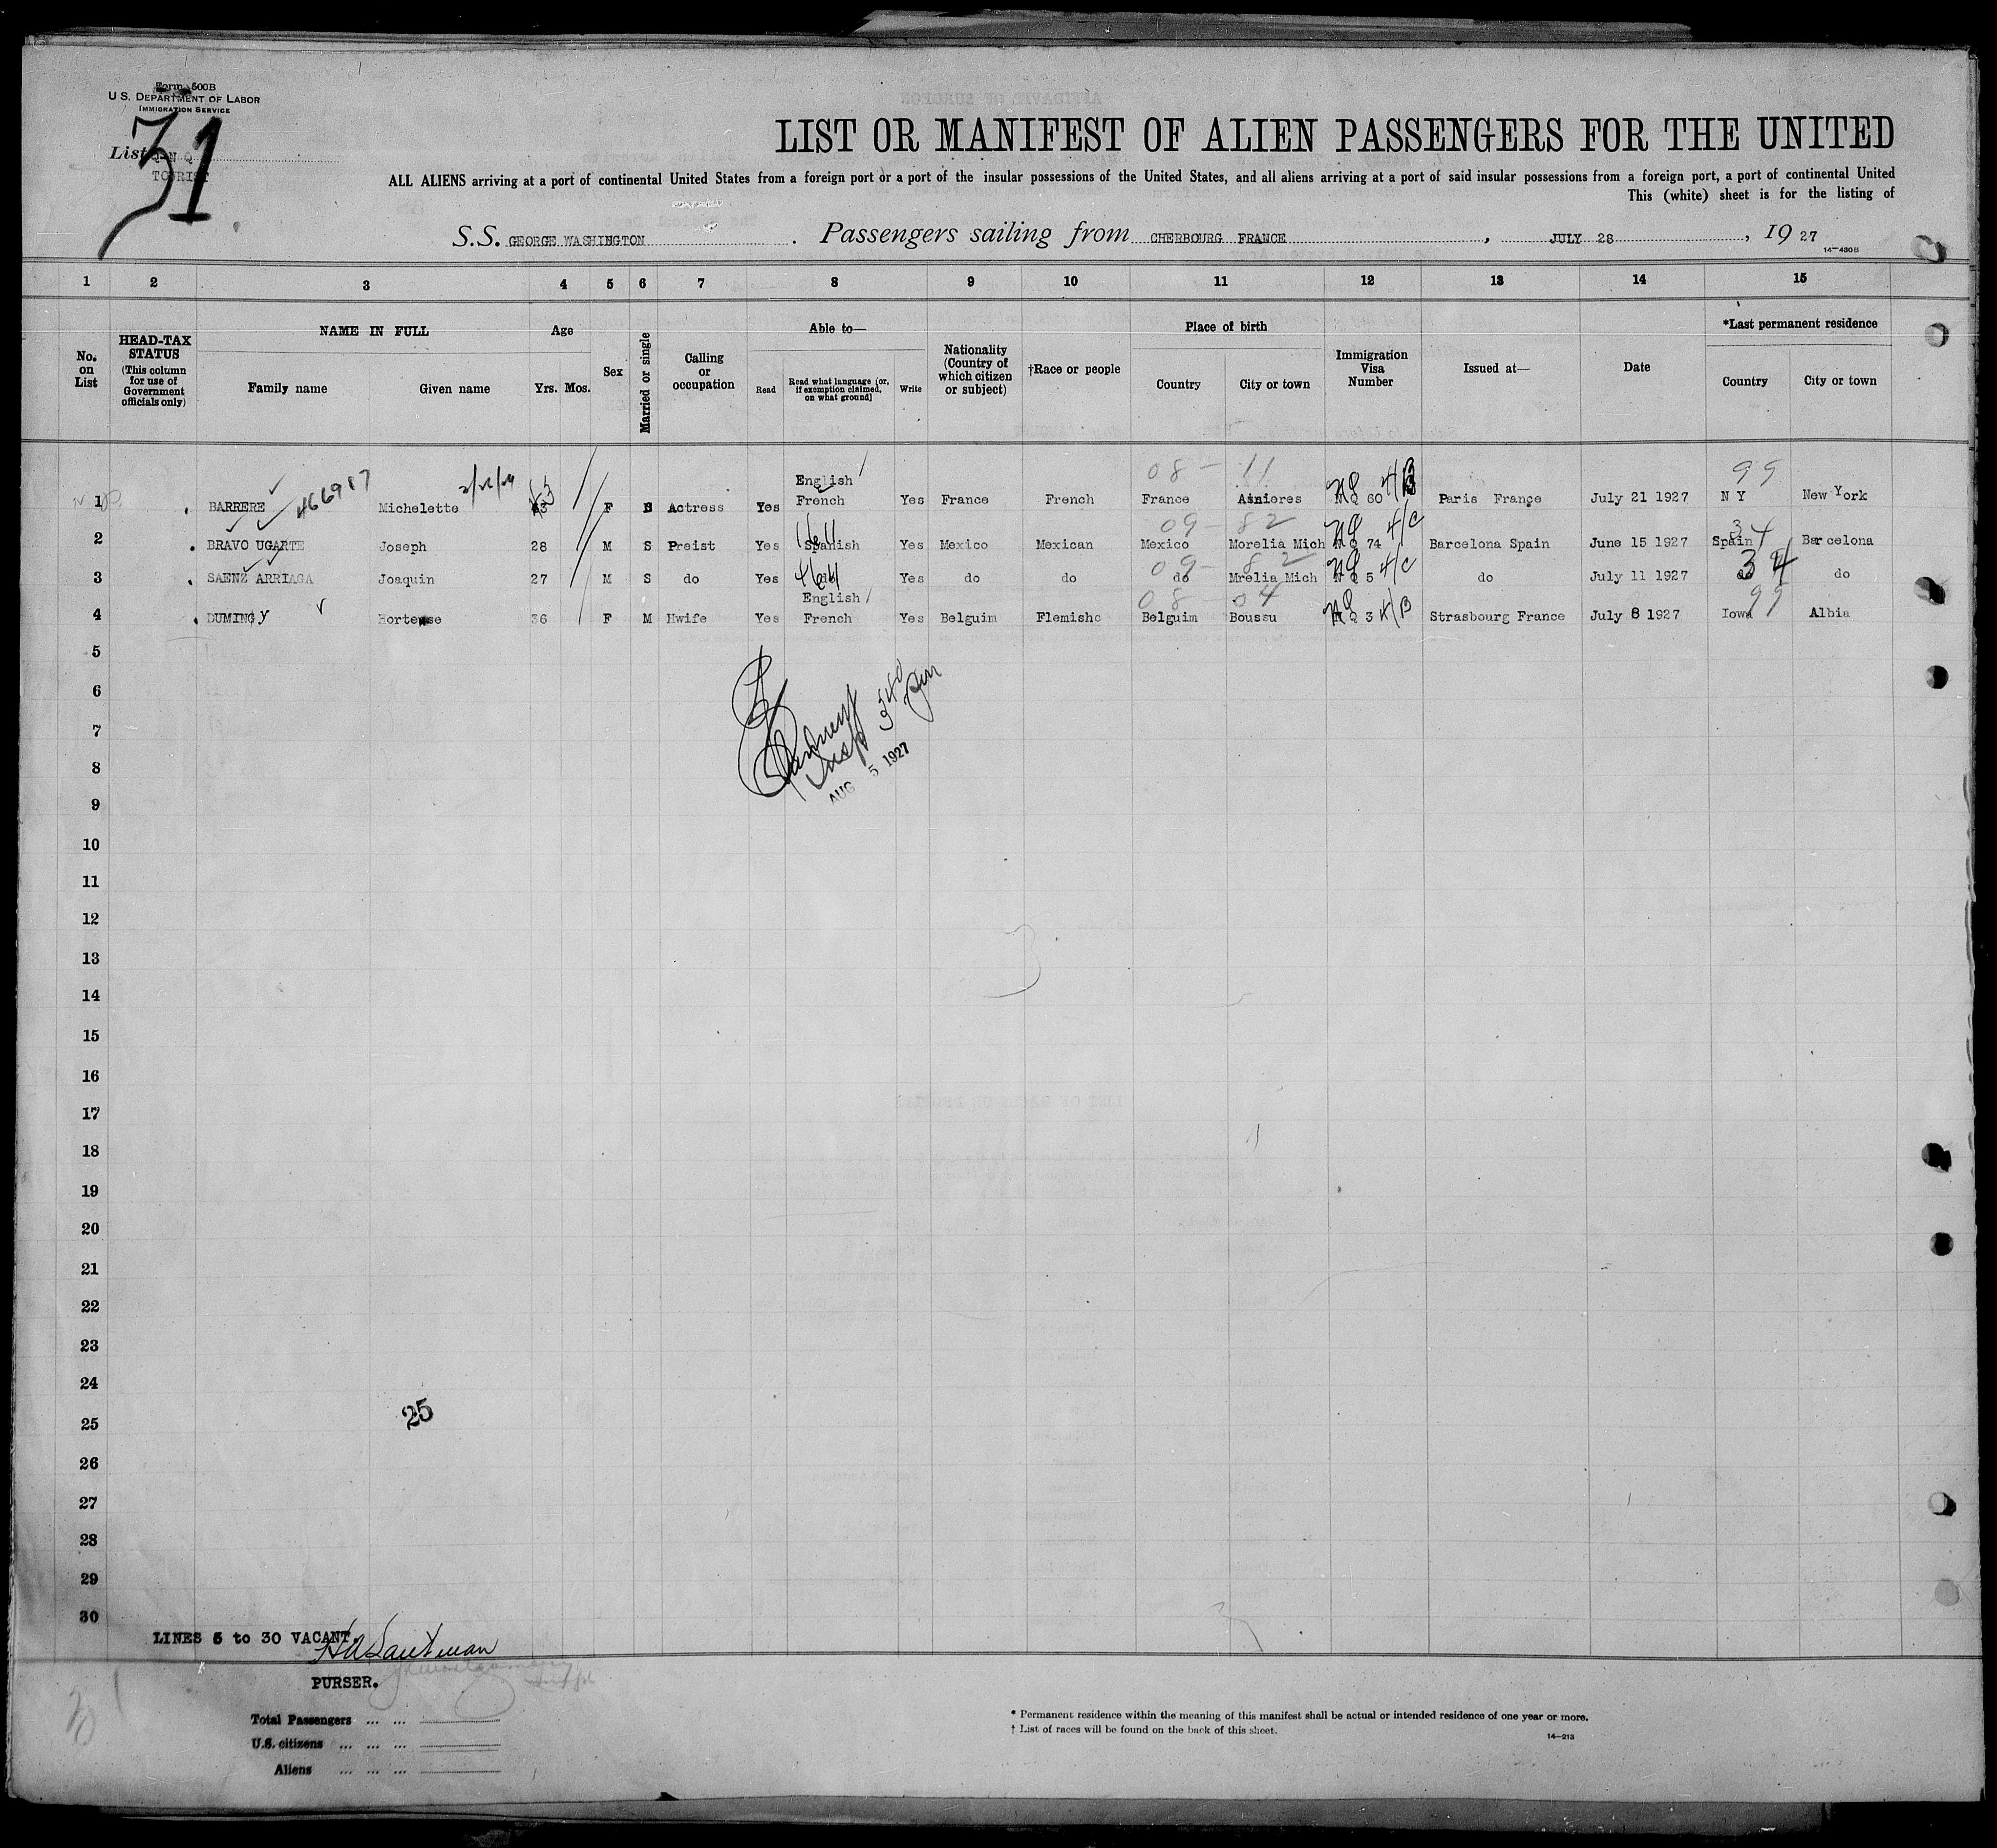 Form 500B
U.S. DEPARTMENT OF LABOR
IMMIGRATION SERVICE
31
List
TOURIST
LIST OR MANIFEST OF ALIEN PASSENGERS FOR THE UNITED
ALL ALIENS arriving at a port of continental United States from a foreign port or a port of the insular possessions of the United States, and all aliens arriving at a port of said insular possessions from a foreign port, a port of continental United
This (white) sheet is for the listing of
S.S. GEORGE WASHINGTON . Passengers sailing from CHERBOURG FRANCE , JULY 28 , 19 27
14-430B
1 2 3 4 5 6 7 8 9 10 11 12 13 14 15
No. on List
HEAD-TAX STATUS (This column for use of Government officials only)
NAME IN FULL
Family name Given name
Age
Yrs. Mos.
Sex
Married or single
Calling or occupation
Able to—
Read
Read what language [or, if exemption claimed, on what ground]
Write
Nationality (Country of which citizen or subject)
†Race or people
Place of birth
Country City or town
Immigration Visa Number
Issued at—
Date
*Last permanent residence
Country City or town
08 - 11 99
1 BARRERE 466917 Michelette F S Actress Yes English French Yes France French France Asnieres N Q 60 4/B Paris France July 21 1927 N Y New York
09 - 82 34
2 BRAVO UGARTE Joseph 28 M S Preist Yes Spanish Yes Mexico Mexican Mexico Morelia Mich N Q 74 4/C Barcelona Spain June 15 1927 Spain Barcelona
09 - 82 34
3 SAENZ ARRIAGA Joaquin 27 M S do Yes do Yes do do do Mrelia Mich N Q 5 4/C do July 11 1927 do do
08 - 04 99
4 DUMINGY Hortense 36 F M Hwife Yes English French Yes Belguim Flemishc Belguim Boussu N Q 3 4/B Strasbourg France July 8 1927 Iowa Albia
5
6
7
8
Insp
AUG 5 1927
9
10
11
12
13
14
15
16
17
18
19
20
21
22
23
24
25
25
26
27
28
29
30
LINES 5 to 30 VACANT.
PURSER.
Total Passengers ... ...
U.S. citizens ... ... ...
Aliens ... ... ...
* Permanent residence within the meaning of this manifest shall be actual or intended residence of one year or more.
† List of races will be found on the back of this sheet.
14-213